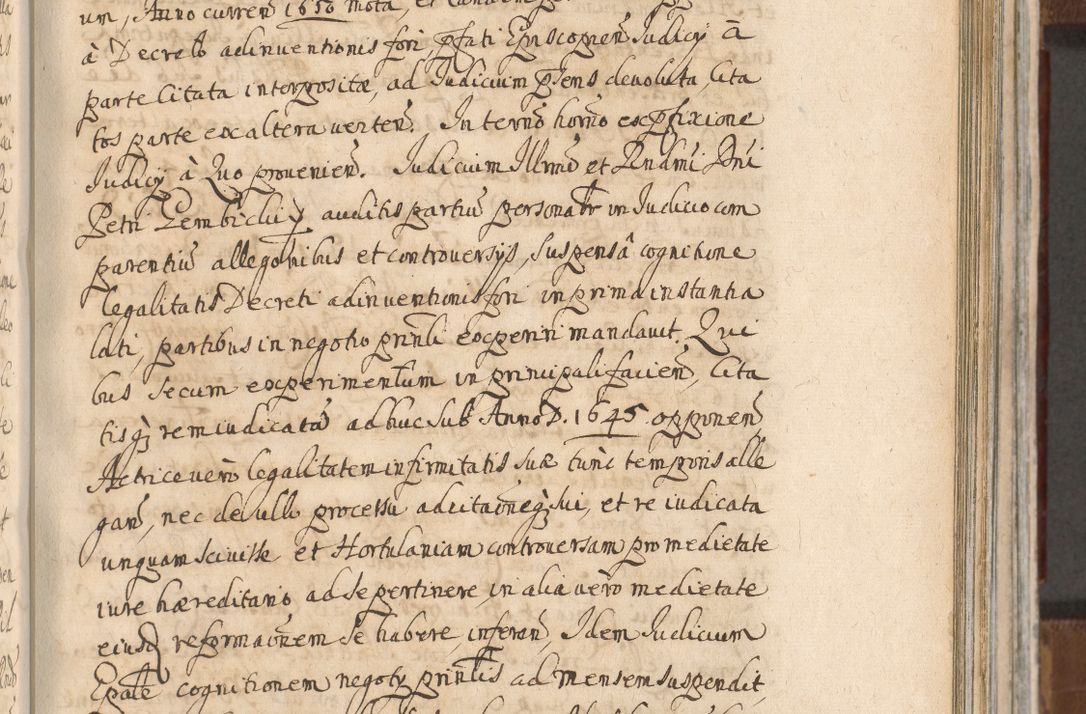 um, Anno curren 1650 mota, et
à Decreto adinventionis fori, pfati Episcopien Judicÿ ā
parte Citata interpositæ, ad Judicium pñs devoluta, Cita
tos parte ex altera verten. In termõ horño ex pfixione
Judicÿ à Quo provenien. Judicium Illrmi et Rndmi Dni
Petri Gembichi auditis partiũ personałr in Judicio com
parentiũ allegonibus et controversÿs, suspensâ cognitione
legalitatis Decreti adinventionis fori in prima instantia
lati, partibus in negotio prinli experiri mandavit. Qui
bus secum experimentum in principali facien, Cita
tis q rem iudicatã adhuc sub Anno D. 1645 opponen,
Actrice vero legalitatem infirmitatis suæ tunc temporis alle
gan, nec de ullo processu ad citaonẽ sui, et re iudicata
unquam scivisse et Hortulaniam controversam pro medietate
iure hæreditario ad se pertinere, in alia vero medietate
eiusd reformaonem se habere, inferen, Idem Judicium
Epale cognitionem negotÿ prinlis ad mensem suspendit,